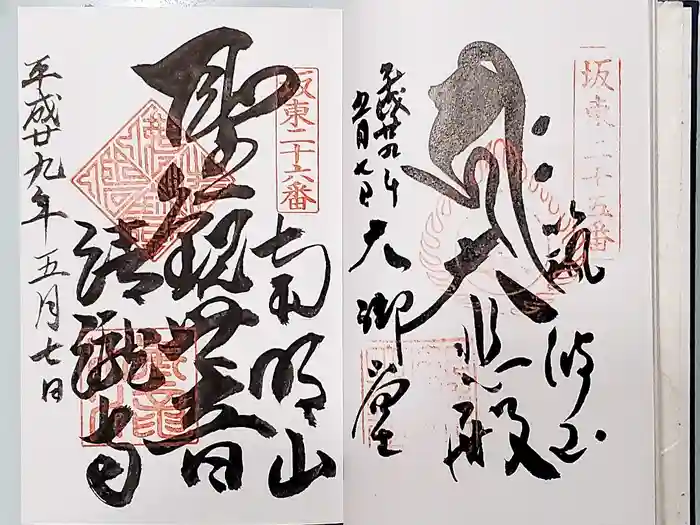 坂東二十五番
筑波山
大悲殿
大御堂
平成廿九年
五月七日
坂東二十六番
南明山
聖観世音
清瀧寺
平成廿九年五月七日